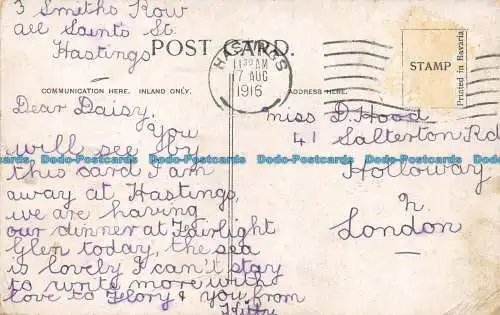 3 Smiths Row
All Saints St.
Hastings
POST CARD.
HASTINGS
11 30 AM
7 AUG
1916
STAMP
Printed in Bavaria
COMMUNICATION HERE. INLAND ONLY.
ADDRESS HERE.
Dear Daisy,
You
will see by
this card I am
away at Hastings,
we are having
our dinner at Fairlight
Glen today, the sea
is lovely I can't stay
to write more with
love to Flory & you from
Kitty
Miss D. Hood
41 Salterton Rd
Holloway
N.
London
Dodo-Postcards Dodo-Postcards Dodo-Postcards Dodo-Postcards Dodo-Postcards